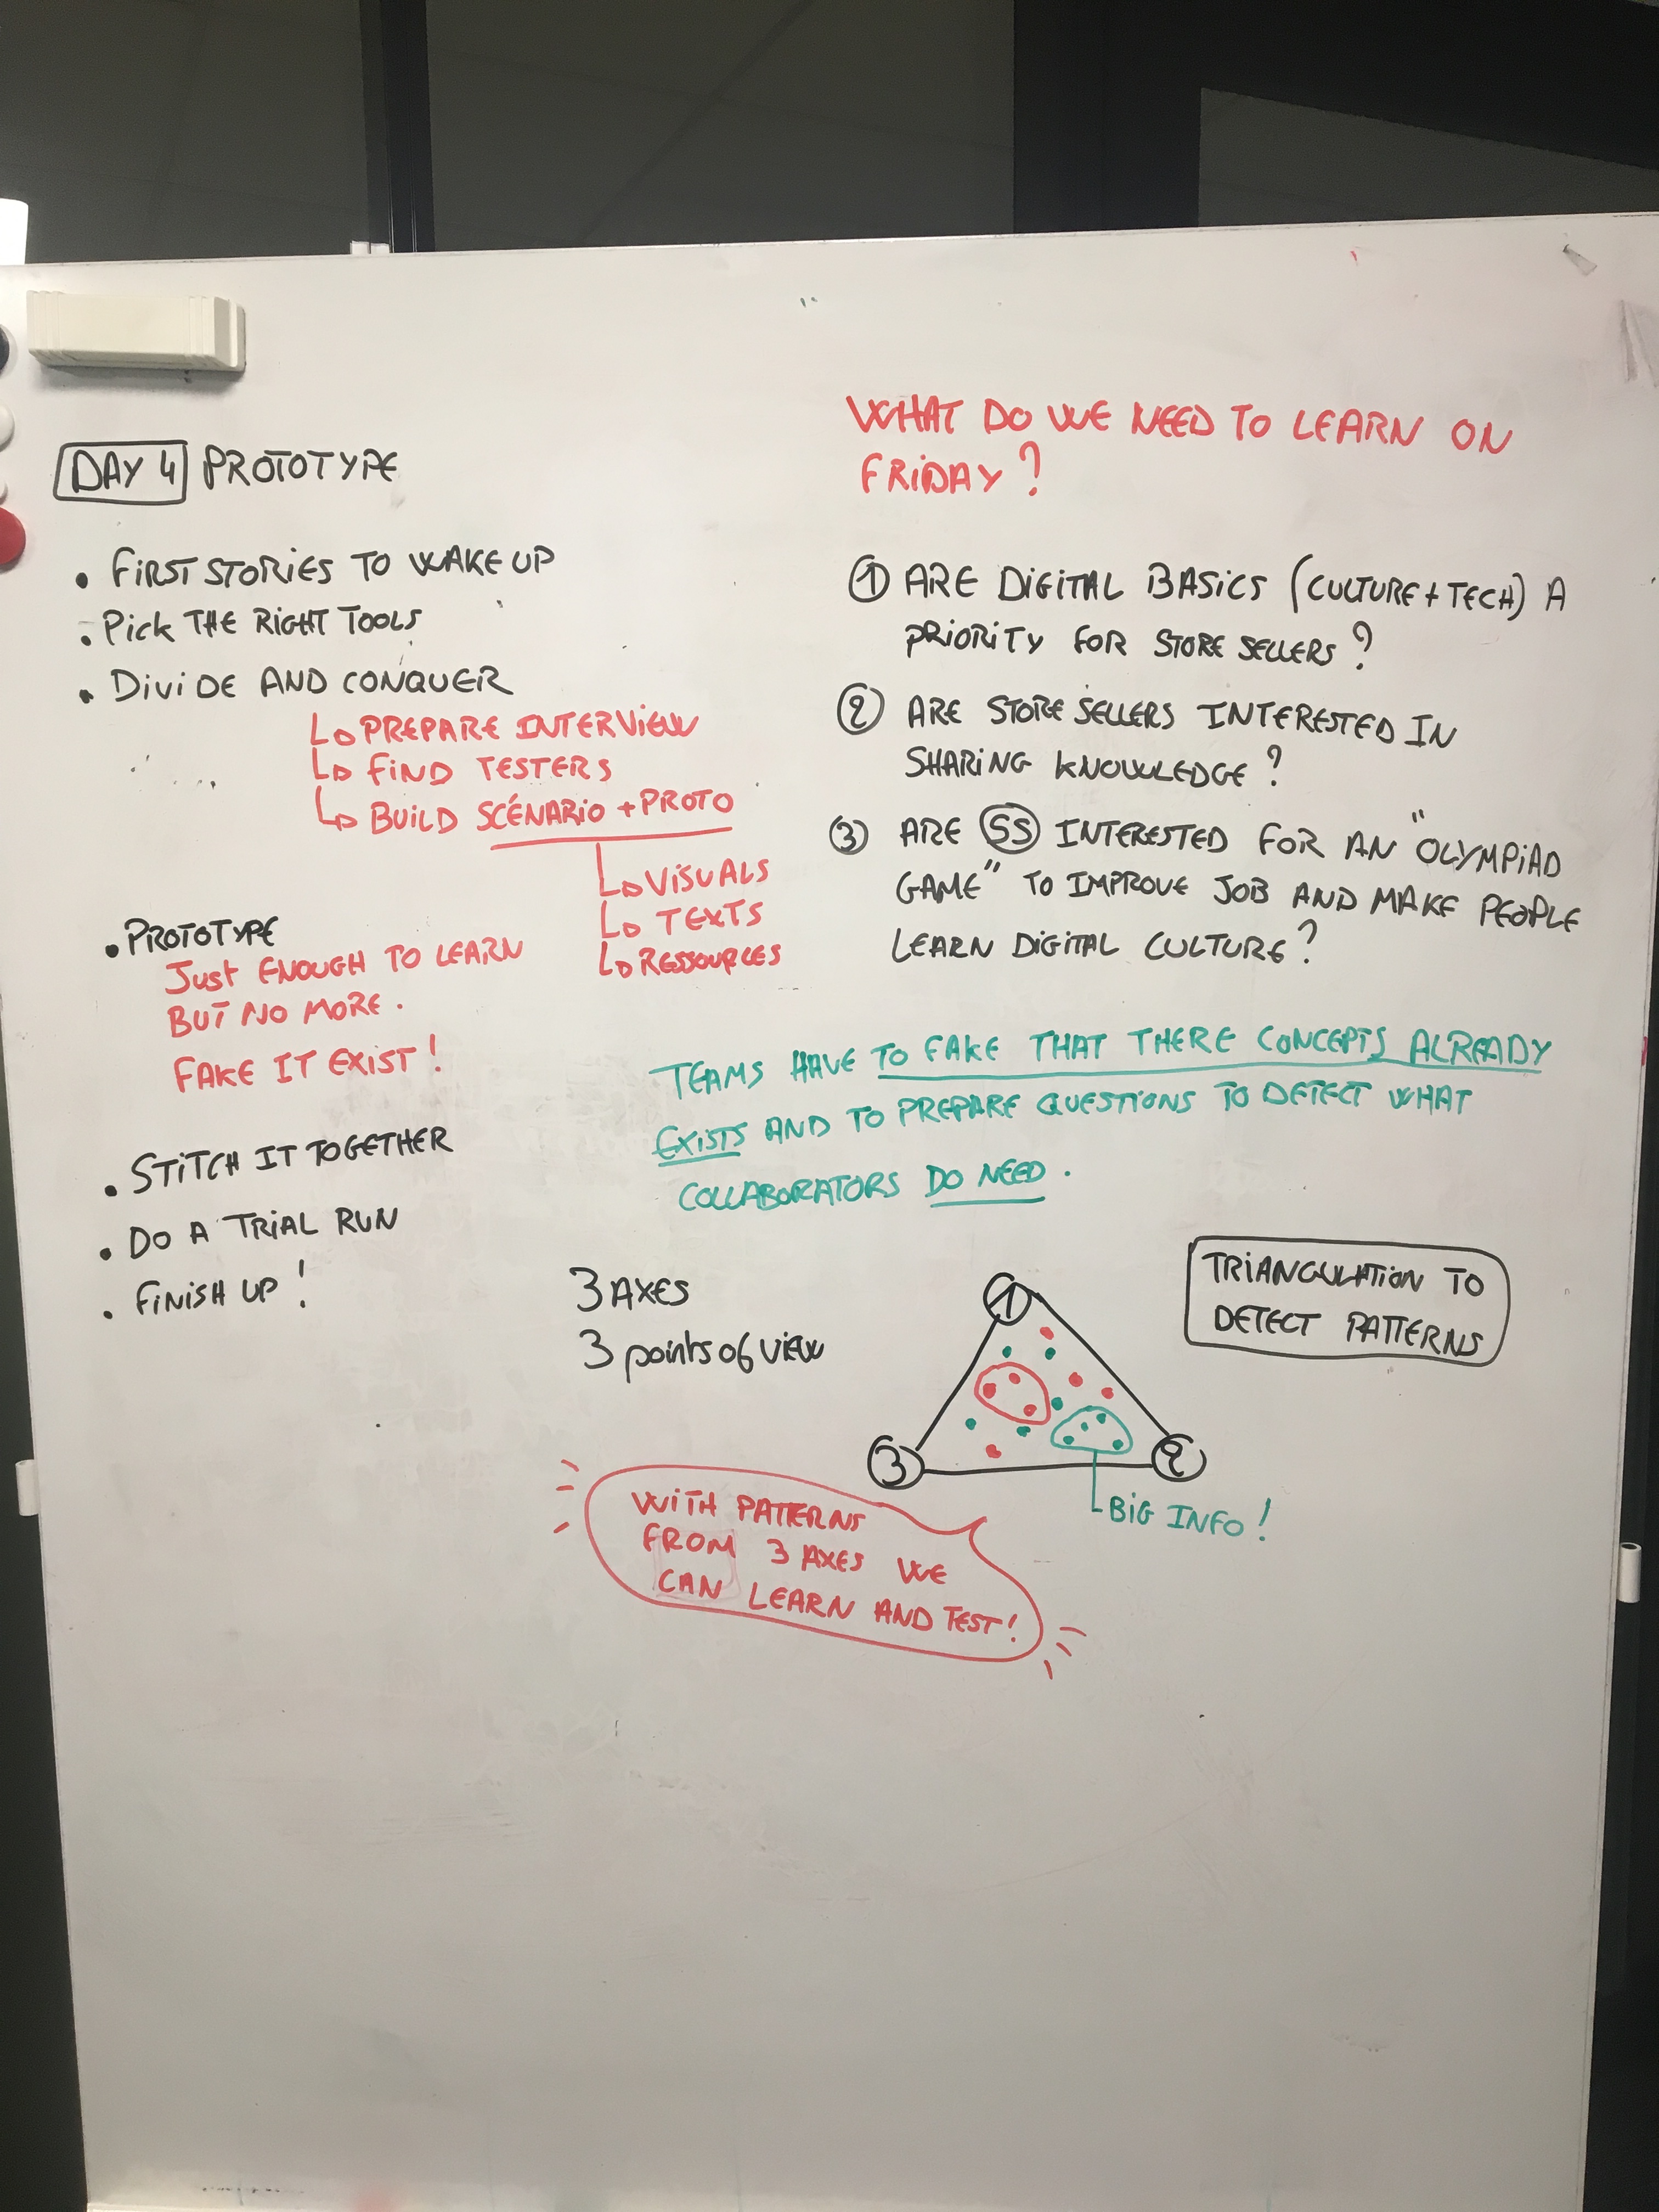 DAY 4 PROTOTYPE
• FIRST STORIES TO WAKE UP
• Pick THE RIGHT TOOLS
• DIVIDE AND CONQUER
↳ PREPARE INTERVIEW
↳ FIND TESTERS
↳ BUILD SCÉNARIO + PROTO
↳ VISUALS
↳ TEXTS
↳ RESSOURCES
• PROTOTYPE
Just ENOUGH TO LEARN
BUT NO MORE.
FAKE IT EXIST!
• STITCH IT TOGETHER
• DO A TRIAL RUN
• FINISH UP!
WHAT DO WE NEED TO LEARN ON
FRIDAY?
① ARE DIGITAL BASICS (CULTURE + TECH) A
PRIORITY FOR STORE SELLERS?
② ARE STORE SELLERS INTERESTED IN
SHARING KNOWLEDGE?
③ ARE SS INTERESTED FOR AN "OLYMPIAD
GAME" TO IMPROVE JOB AND MAKE PEOPLE
LEARN DIGITAL CULTURE?
TEAMS HAVE TO FAKE THAT THERE CONCEPTS ALREADY
EXISTS AND TO PREPARE QUESTIONS TO DETECT WHAT
COLLABORATORS DO NEED.
3 AXES
3 points of view
1
3
2
BIG INFO!
TRIANGULATION TO
DETECT PATTERNS
WITH PATTERNS
FROM 3 AXES WE
CAN LEARN AND TEST!